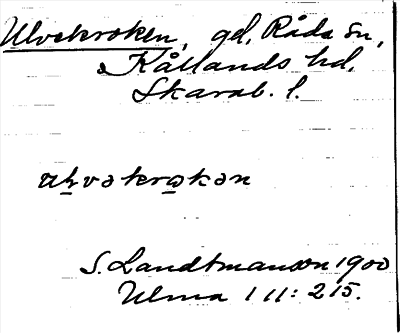 Ulvekroken, gd, Råda sn,
Kållands hd,
Skarab. l.
ulvəkrokən
S. Landtmanson 1900
Ulma 111: 215.